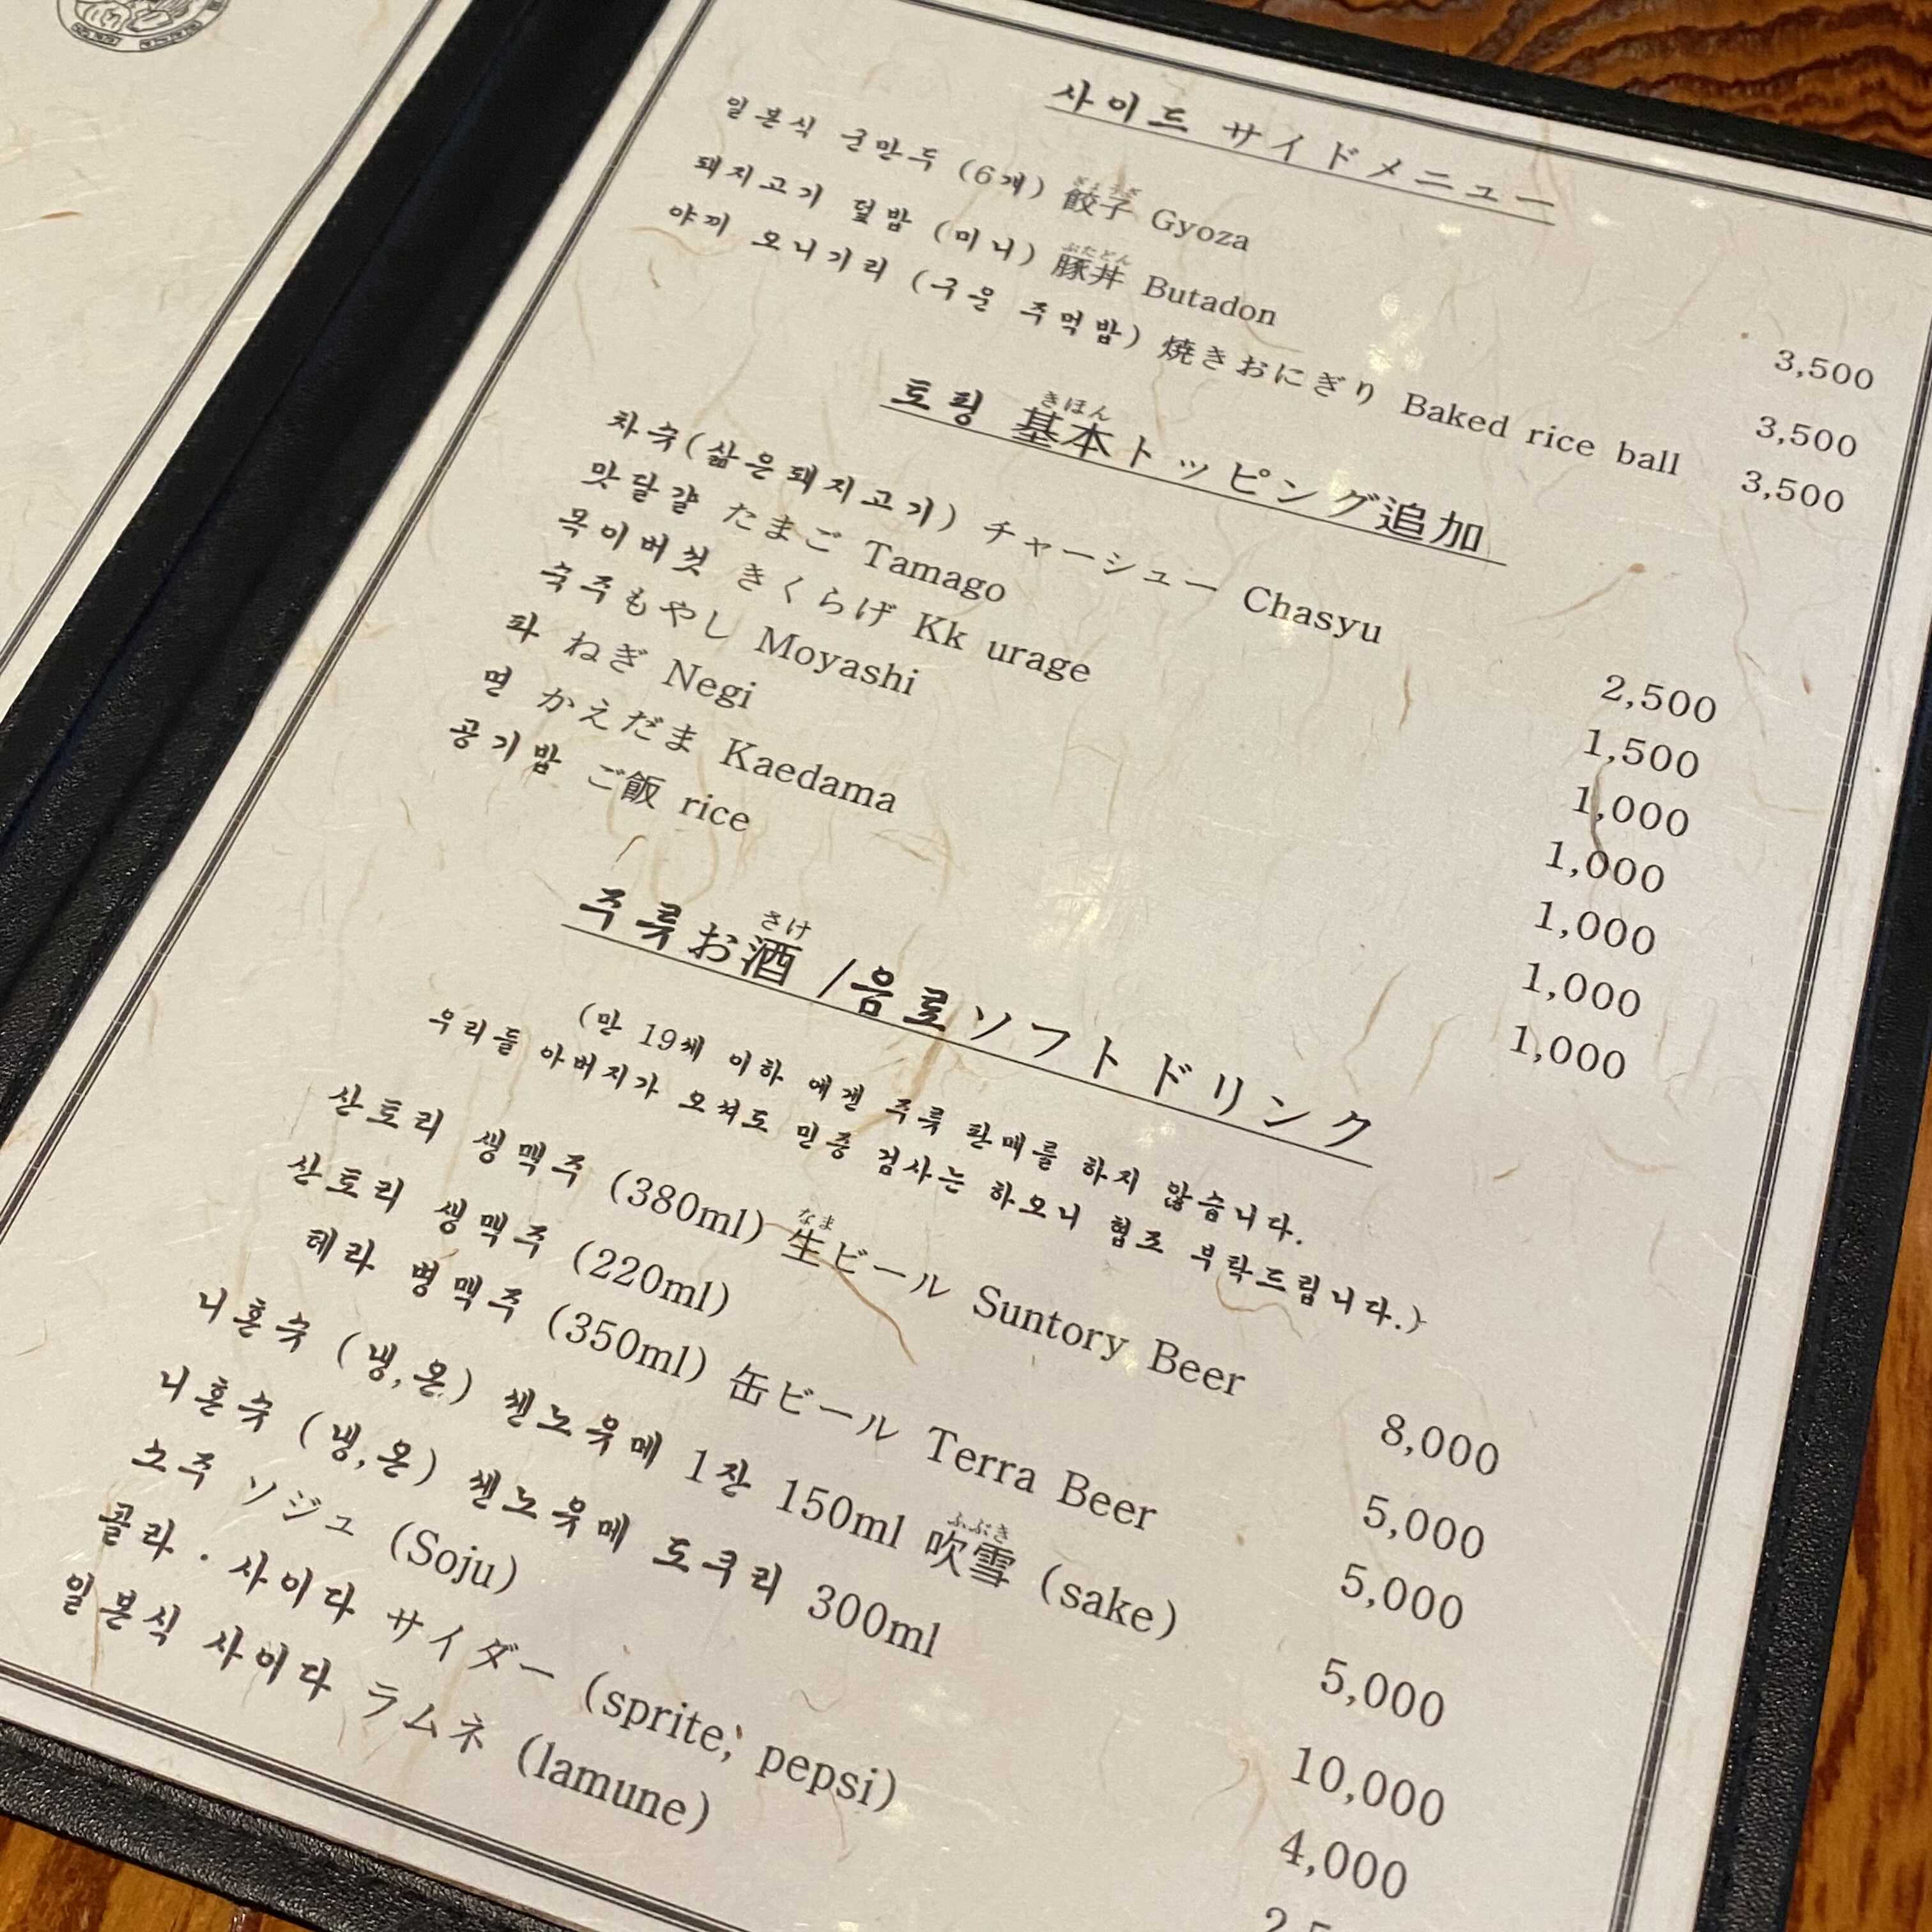 사이드 サイドメニュー
일본식 군만두 (6개) 餃子 Gyoza 3,500
돼지고기 덮밥 (미니) 豚丼 Butadon 3,500
야끼 오니기리 (구운 주먹밥) 焼きおにぎり Baked rice ball 3,500
토핑 基本トッピング追加
차슈(삶은돼지고기) チャーシュー Chasyu 2,500
맛달걀 たまご Tamago 1,500
목이버섯 きくらげ Kk urage 1,000
숙주もやし Moyashi 1,000
파 ねぎ Negi 1,000
면 かえだま Kaedama 1,000
공기밥 ご飯 rice 1,000
주류お酒 /음료ソフトドリンク
(만 19세 이하 에겐 주류 판매를 하지 않습니다.
우리들 아버지가 오셔도 민증 검사는 하오니 협조 부탁드립니다.)
산토리 생맥주 (380ml) 生ビール Suntory Beer 8,000
산토리 생맥주 (220ml) 5,000
테라 병맥주 (350ml) 缶ビール Terra Beer 5,000
니혼슈 (냉,온) 센노유메 1잔 150ml 吹雪 (sake) 5,000
니혼슈 (냉,온) 센노유메 도쿠리 300ml 10,000
소주 ソジュ (Soju) 4,000
콜라 · 사이다 サイダー (sprite, pepsi)
일본식 사이다 ラムネ (lamune)